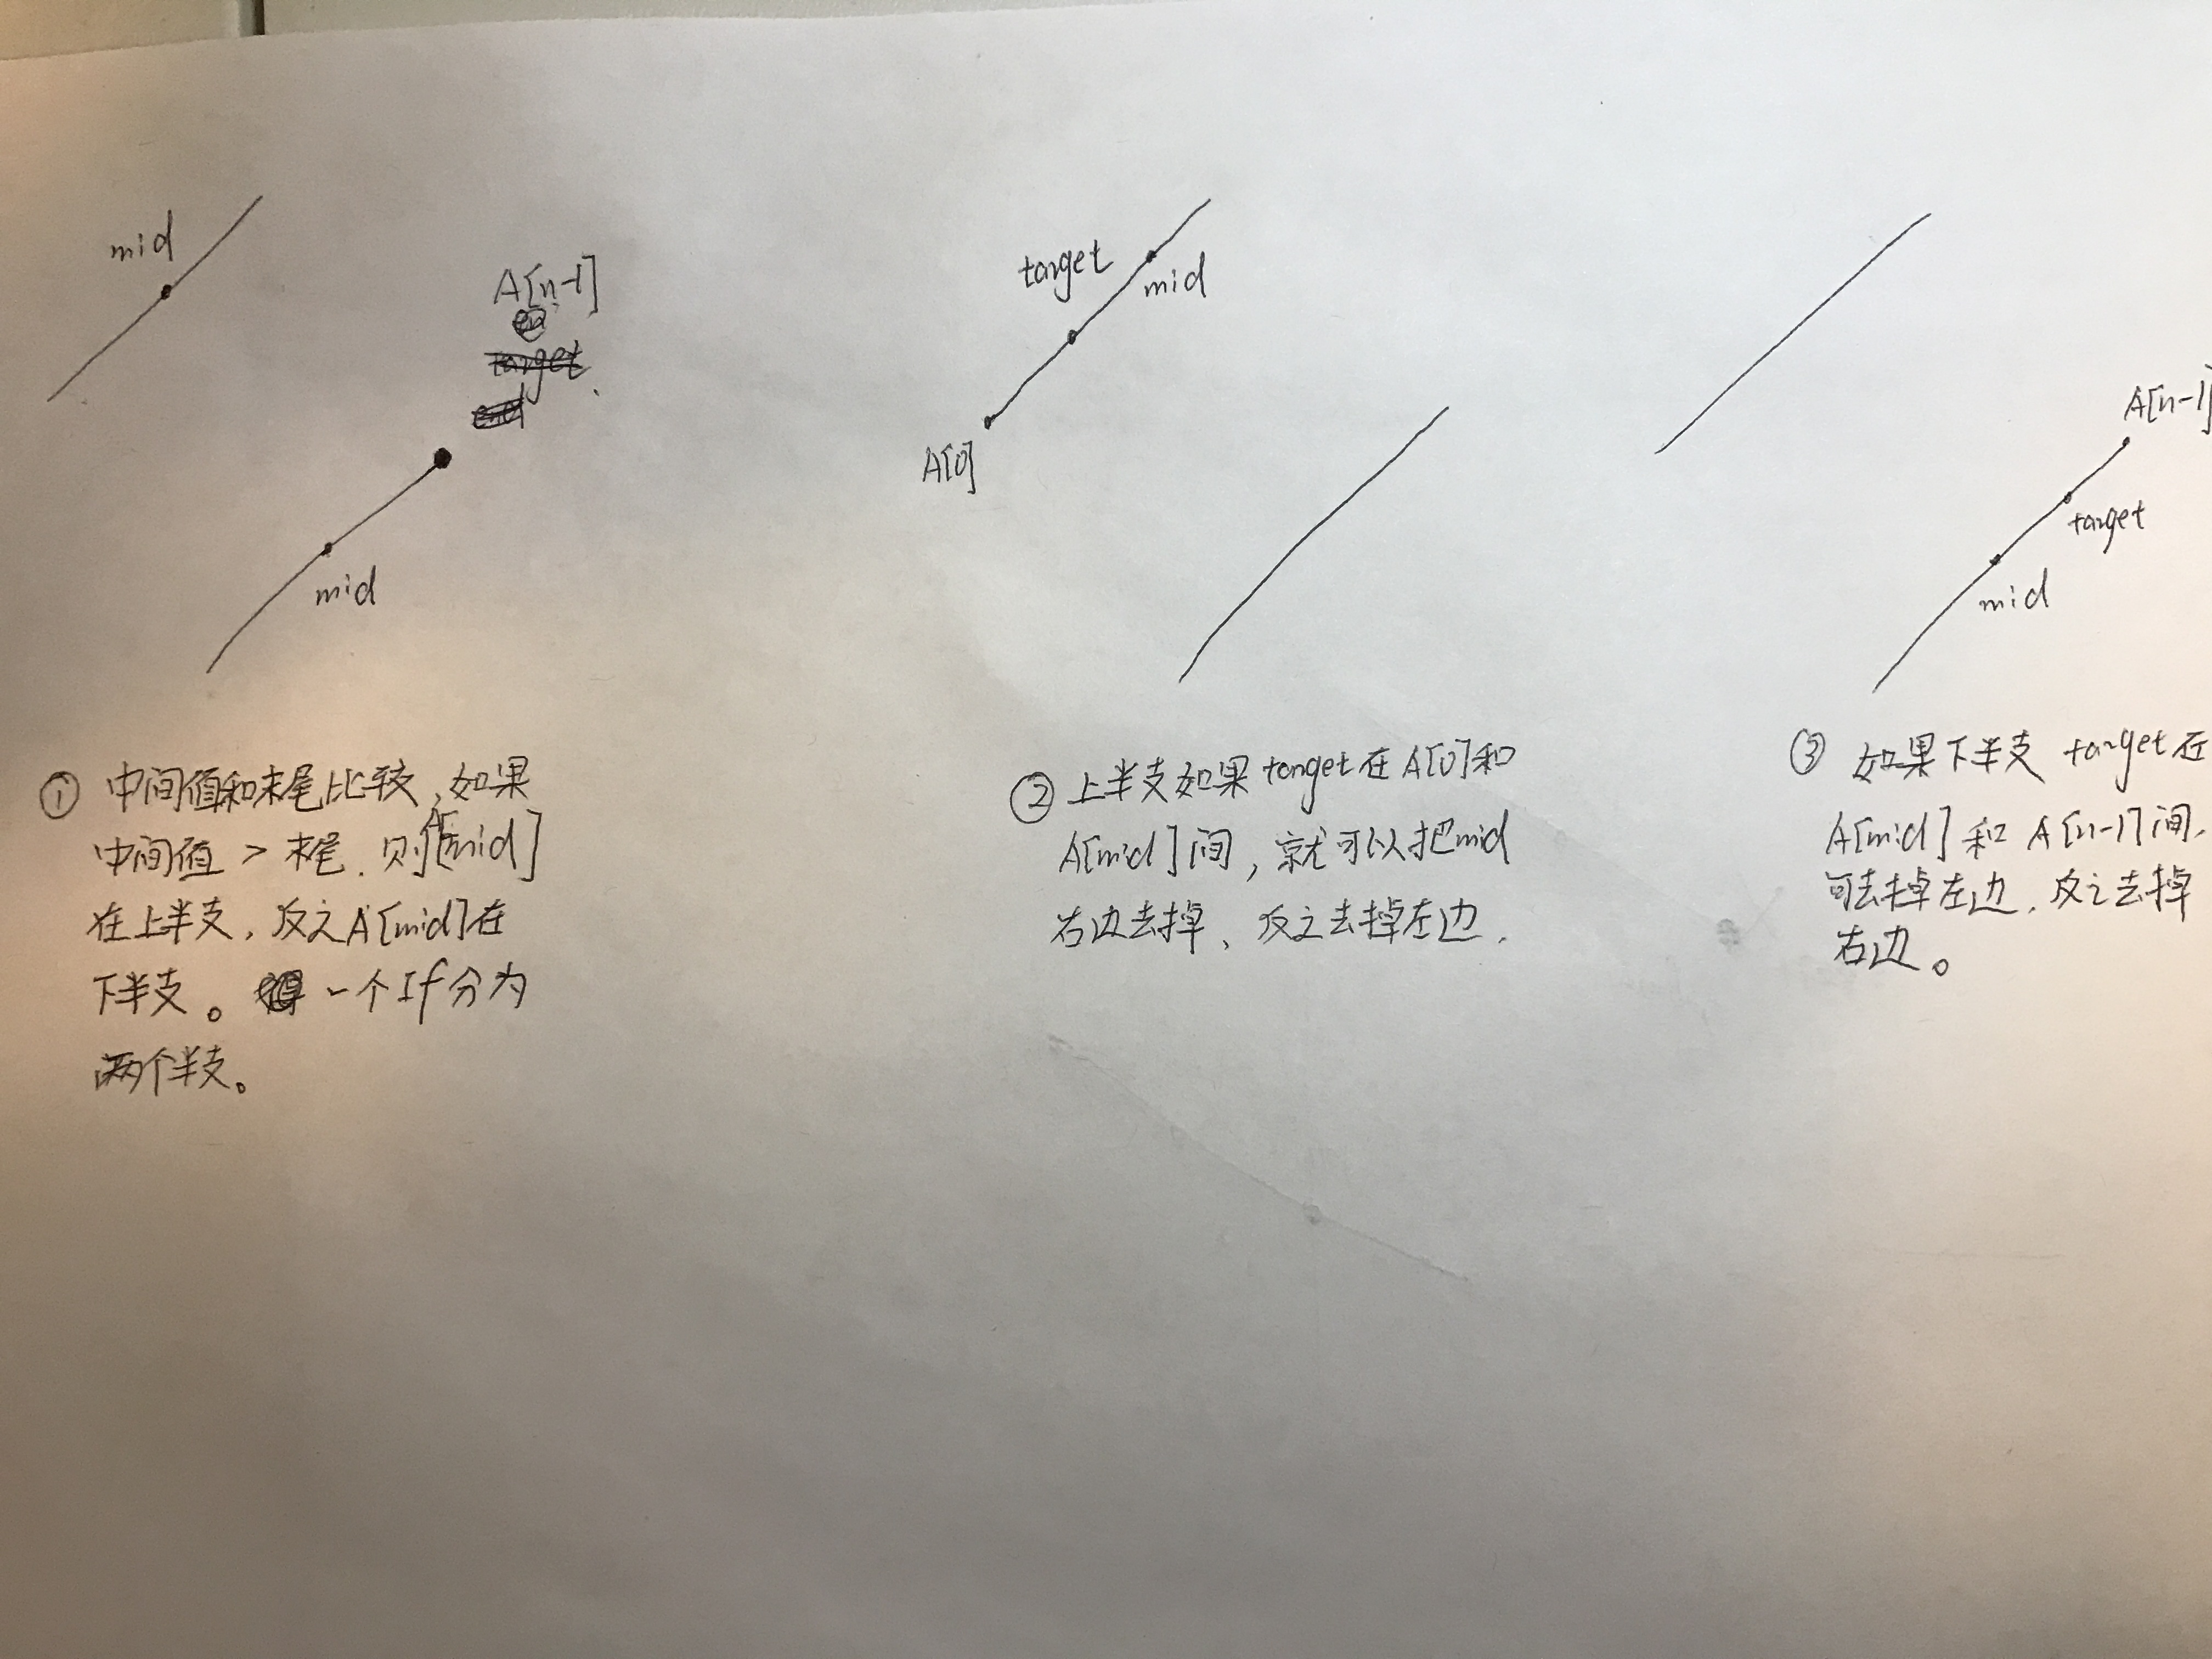 mid
mid
A[n-1]
① 中间值和末尾比较,如果
中间值 > 末尾、则A[mid]
在上半支,反之A[mid]在
下半支。一个If分为
两个半支。
A[0]
target
mid
② 上半支如果target在A[0]和
A[mid]间,就可以把mid
右边去掉、反之去掉左边.
mid
target
A[n-1]
③ 如果下半支 target在
A[mid]和A[n-1]间,
可去掉左边,反之去掉
右边。